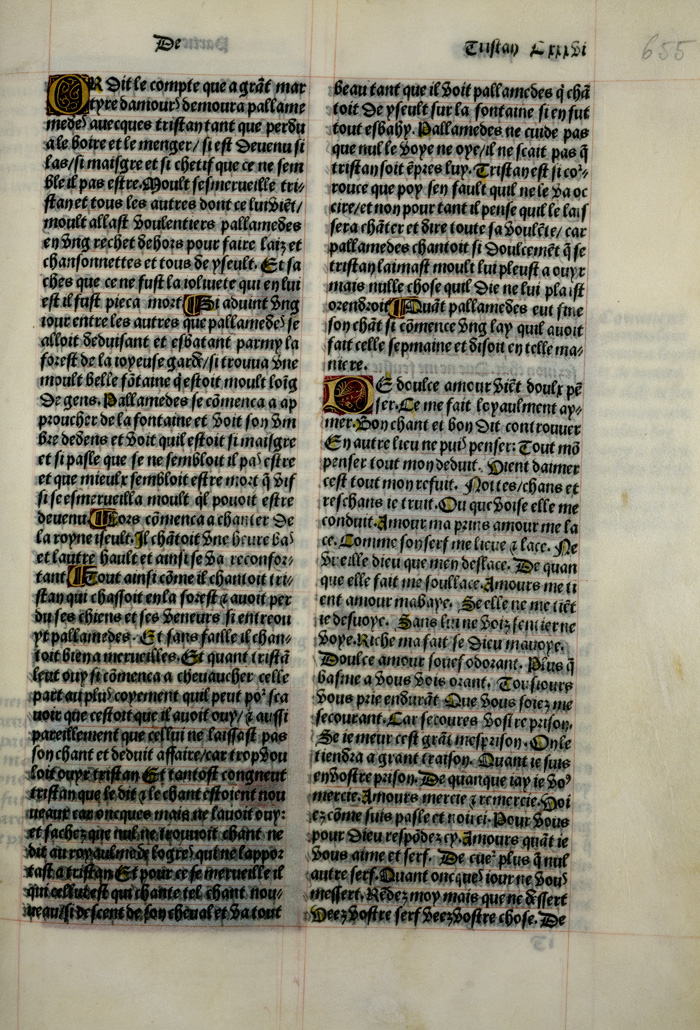 De
Tristan Lxxxvi
655
OR Dit le compte que a grãt mar
tyre damour demoura pallame
medes auecques tristan tant que perdu
a le boire et le menger/ si est Deuenu si
las/si maisgre et si chetif que ce ne sem
ble il pas estre. Moult sesmerueille tri-
stan et tous les autres dont ce lui viẽt/
moult allast voulentiers pallamedes
en vng rechet dehors pour faire laiz et
chansonnettes et tous de yseult. Et sa
ches que ce ne fust la ioliuete qui en lui
est il fust pieca mort Si aduint vng
iour entre les autres que pallamedes se
alloit deduisant et esbatant parmy la
forest de la ioyeuse garde/si trouua vne
moult belle fõtaine q̃ estoit moult loĩg
De gens. Pallamedes se cõmenca a ap
proucher de la fontaine et voit son vm
bre dedens et voit quil estoit si maisgre
et si pasle que se ne sembloit il pas estre
et que mieulx sembloit estre mort q̃ vif
si se esmerueilla moult ql pouoit estre
deuenu. Lors cõmenca a chanter De
la royne iseult. Il chãtoit vne heure bas
et lautre hault et ainsi se va reconfor-
tant Tout ainsi cõme il chantoit tri-
stan qui chassoit en la forest ⁊ auoit per
du ses chiens et ses veneurs si entreou
yt pallamedes. Et sans faille il chan-
toit bien a merueilles. Et quant tristã
leut ouy si cõmenca a cheuaucher celle
part au plus coyement quil peut por sca
uoir que cestoit que il auoit ouy/ ⁊ aussi
pareillement que cellui ne laissast pas
son chant et deduit affaire/car trop vou
loit ouyr tristan Et tantost congneut
tristan que le dit ⁊ le chant estoient nou
ueaux car oncques mais ne lauoit ouy:
et sachez que nul ne trouuoit chant ne
dit au royaulme de logres qui ne lappor
tast a tristan Et pour ce se merueille il
qui cellui est qui chante tel chant nou-
ueau/si descent de son cheual et va tout
beau tant que il voit pallamedes q̃ chã
toit De yseult sur la fontaine si en fut
tout esbahy. Pallamedes ne cuide pas
que nul le voye ne oye/il ne scait pas q̃
tristan soit ẽpres luy. Tristan est si cor-
rouce que poy sen fault quil ne le va oc
cire/et non pour tant il pense quil le lais
sera chãter et dire toute sa voulẽte/ car
pallamedes chantoit si Doulcemẽt q̃ se
tristan laimast moult lui pleust a ouyr
mais nulle chose quil Die ne lui plaist
orendroit Quãt pallamedes eut fine
son chãt si cõmence vng lay quil auoit
fait celle sepmaine et disoit en telle ma-
niere.
DE doulce amour viẽt doulx pẽ
ser. Ce me fait loyaulment ay-
mer. Bon chant et bon Dit controuuer
En autre lieu ne puis penser: Tout mõ
penser tout mon deduit. Vient daimer
cest tout mon refuit. Nottes/chans et
reschans ie truit. Ou que voise elle me
conduit. Amour ma prins amour me la
ce. Comme son serf me lieue ⁊ lace. Ne
vueille dieu que men deslace. De quan
que elle fait me soullace. Amours me ti
ent amour mabaye. Se elle ne me tiẽt
ie desuoye. Sans lui ne voiz sen ier ne
voye. Riche ma fait se Dieu mauoye.
Doulce amour souef odorant. Plus q̃
basme a vous vois orant. Tousiours
vous prie endurãt Que vous soiez me
secourant. Car secoures vostre prison.
Se ie meur cest grãt mesprison. On le
tiendra a grant traison. Quant ie suis
en vostre prison. De quanque iay ie vos
mercie. Amours mercie ⁊ remercie. Voi
ez cõme suis pasle et noirci. Pour vous
pour Dieu respõdez cy. Amours quãt ie
vous aime et serf. De cuer plus q̃ nul
autre serf. Quant oncques iour ne vous
messert. Rẽdez moy mais que ne dessert
Veez vostre serf veez vostre chose. De